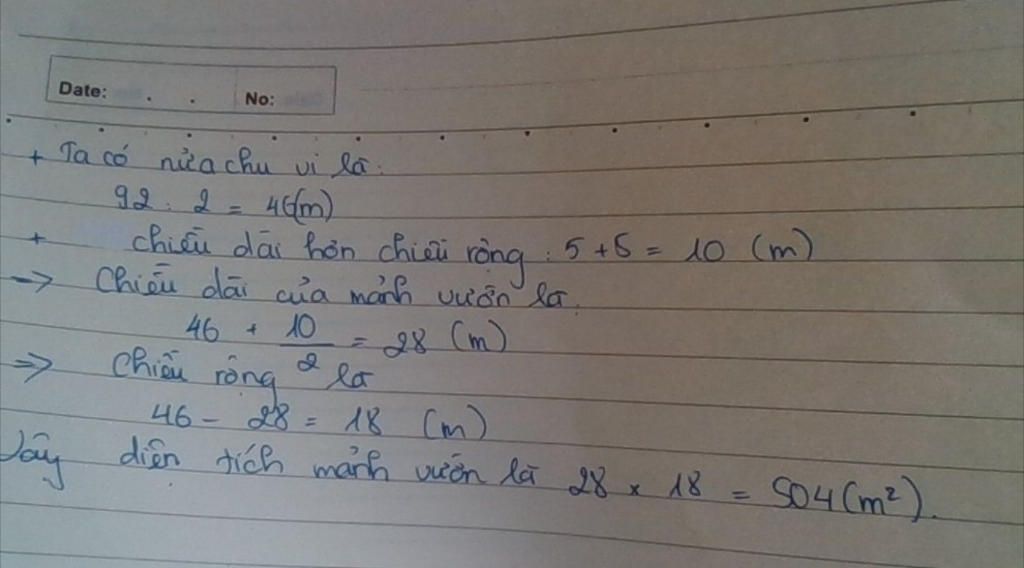 Date: . . No:
+ Ta có nửa chu vi là:
92 : 2 = 46(m)
+ chiều dài hơn chiều rộng : 5 + 5 = 10 (m)
=> Chiều dài của mảnh vườn là.
46 + 10/2 = 28 (m)
=> Chiều rộng là
46 - 28 = 18 (m)
Vậy diện tích mảnh vườn là 28 x 18 = 504 (m²).